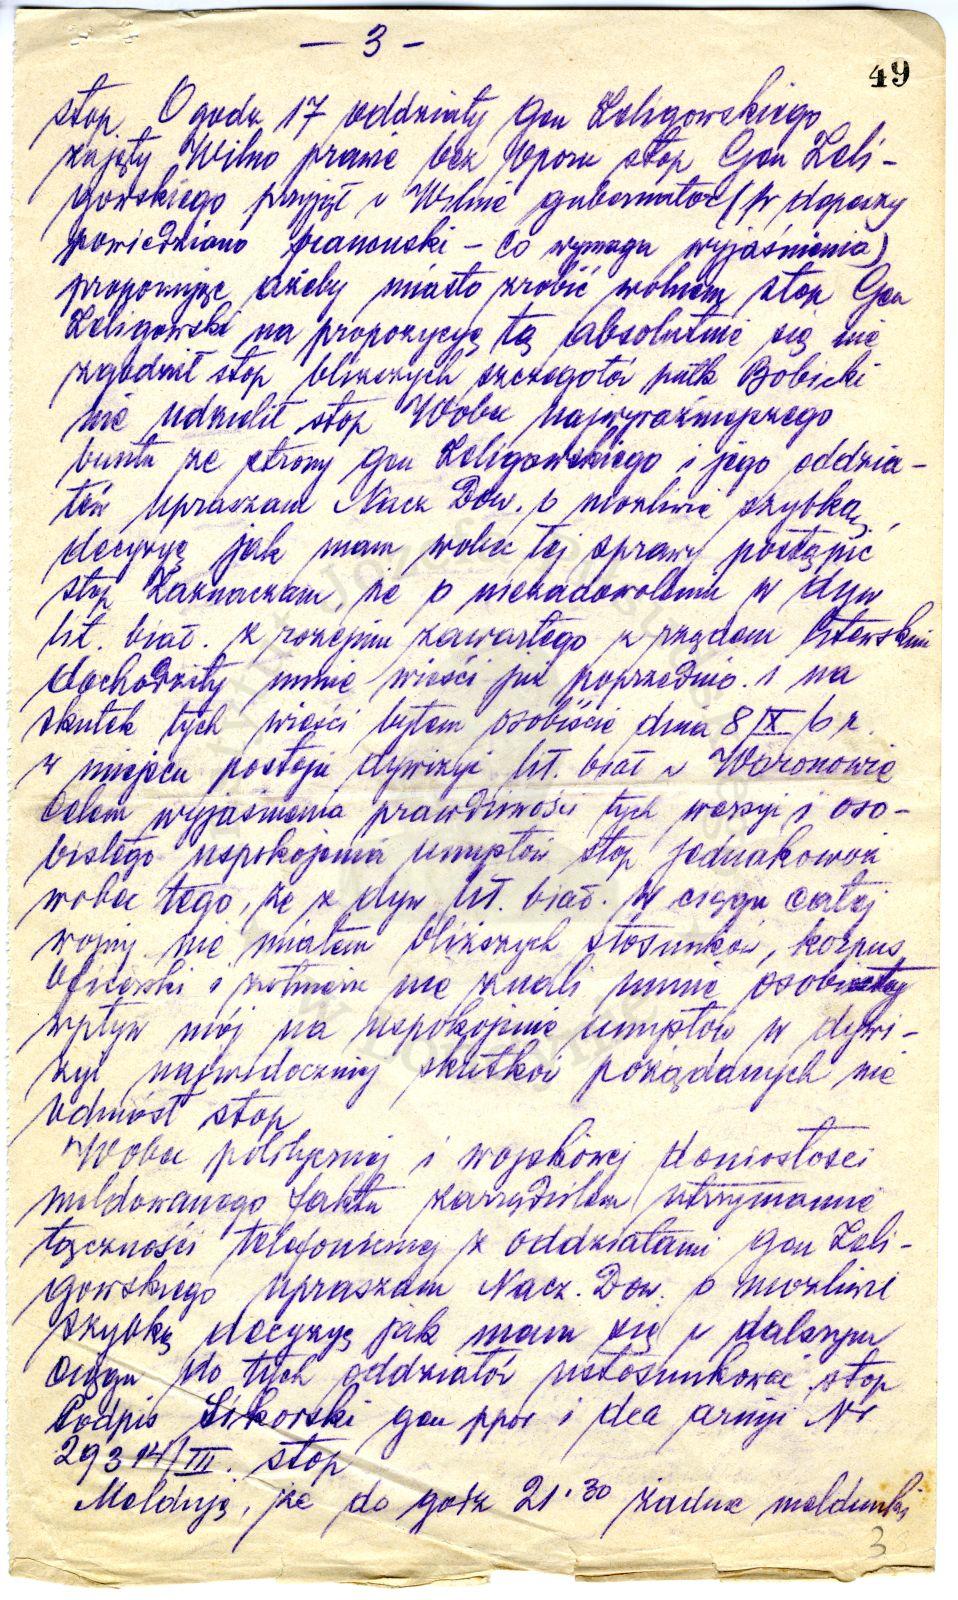 — 3 —
49
stop O godz 17 oddziały Gen Żeligowskiego
zajęły Wilno prawie bez oporu stop Gen Żeli-
gowskiego przyjął w Wilnie gubernator (w depeszy
powiedziano francuski – co wymaga wyjaśnienia)
proponując ażeby miasto zrobić wolnem stop Gen
Żeligowski na propozycję tą absolutnie się nie
zgodził stop bliższych szczegółów pułk Bobicki
nie udzielił stop Wobec najwyraźniejszego
buntu ze strony gen Żeligowskiego i jego oddzia-
łów upraszam Nacz Dow. o możliwie szybką
decyzję jak mam wobec tej sprawy postąpić
stop Zaznaczam, że o niezadowoleniu w dyw
lit. biał. z rozejmu zawartego z rządem litewskim
dochodziły mnie wieści już poprzednio i na
skutek tych wieści byłem osobiście dnia 8 IX b r.
w miejscu postoju dywizji lit. biał w Woronowie
celem wyjaśnienia prawdziwości tych wersyi i oso-
bistego uspokojenia umysłów stop jednakowoż
wobec tego, że z dyw lit. biał. w ciągu całej
wojny nie miałem bliższych stosunków, korpus
oficerski i żołnierze nie znali mnie osobiście
wpływ mój na uspokojenie umysłów w dywi-
zyi najwidoczniej skutków pożądanych nie
odniósł stop
Wobec politycznej i wojskowej doniosłości
meldowanego faktu zarządziłem utrzymanie
łączności telefonicznej z oddziałami gen Żeli-
gowskiego upraszam Nacz. Dow. o możliwie
szybką decyzję jak mam się w dalszym
ciągu do tych oddziałów ustosunkować stop
Podpis Sikorski gen ppor i dca armji Nr
29314/III. stop
Melduję, że do godz 21·30 żadne meldunki
3